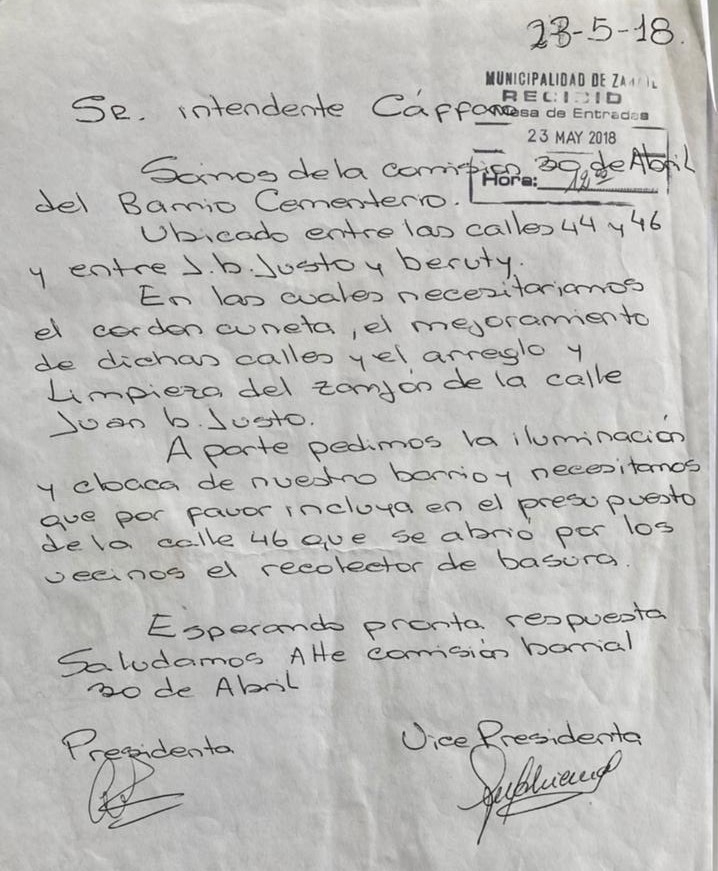 23-5-18.
MUNICIPALIDAD DE
RECIBID
Mesa de Entradas
23 MAY 2018
Hora:
Sr. intendente Cáffaro
Somos de la comisión 30 de Abril
del Barrio Cementerio.
Ubicado entre las calles 44 y 46
y entre J.b.Justo y beruty.
En las cuales necesitariamos
el cordon cuneta, el mejoramiento
de dichas calles y el arreglo y
Limpieza del zanjón de la calle
Juan b. Justo.
A parte pedimos la iluminación
y cloaca de nuestro barrio y necesitamos
que por favor incluya en el presupuesto
de la calle 46 que se abrió por los
vecinos el recolector de basura.
Esperando pronta respuesta
Saludamos Atte comisión barrial
30 de Abril
Presidenta
Vice Presidenta